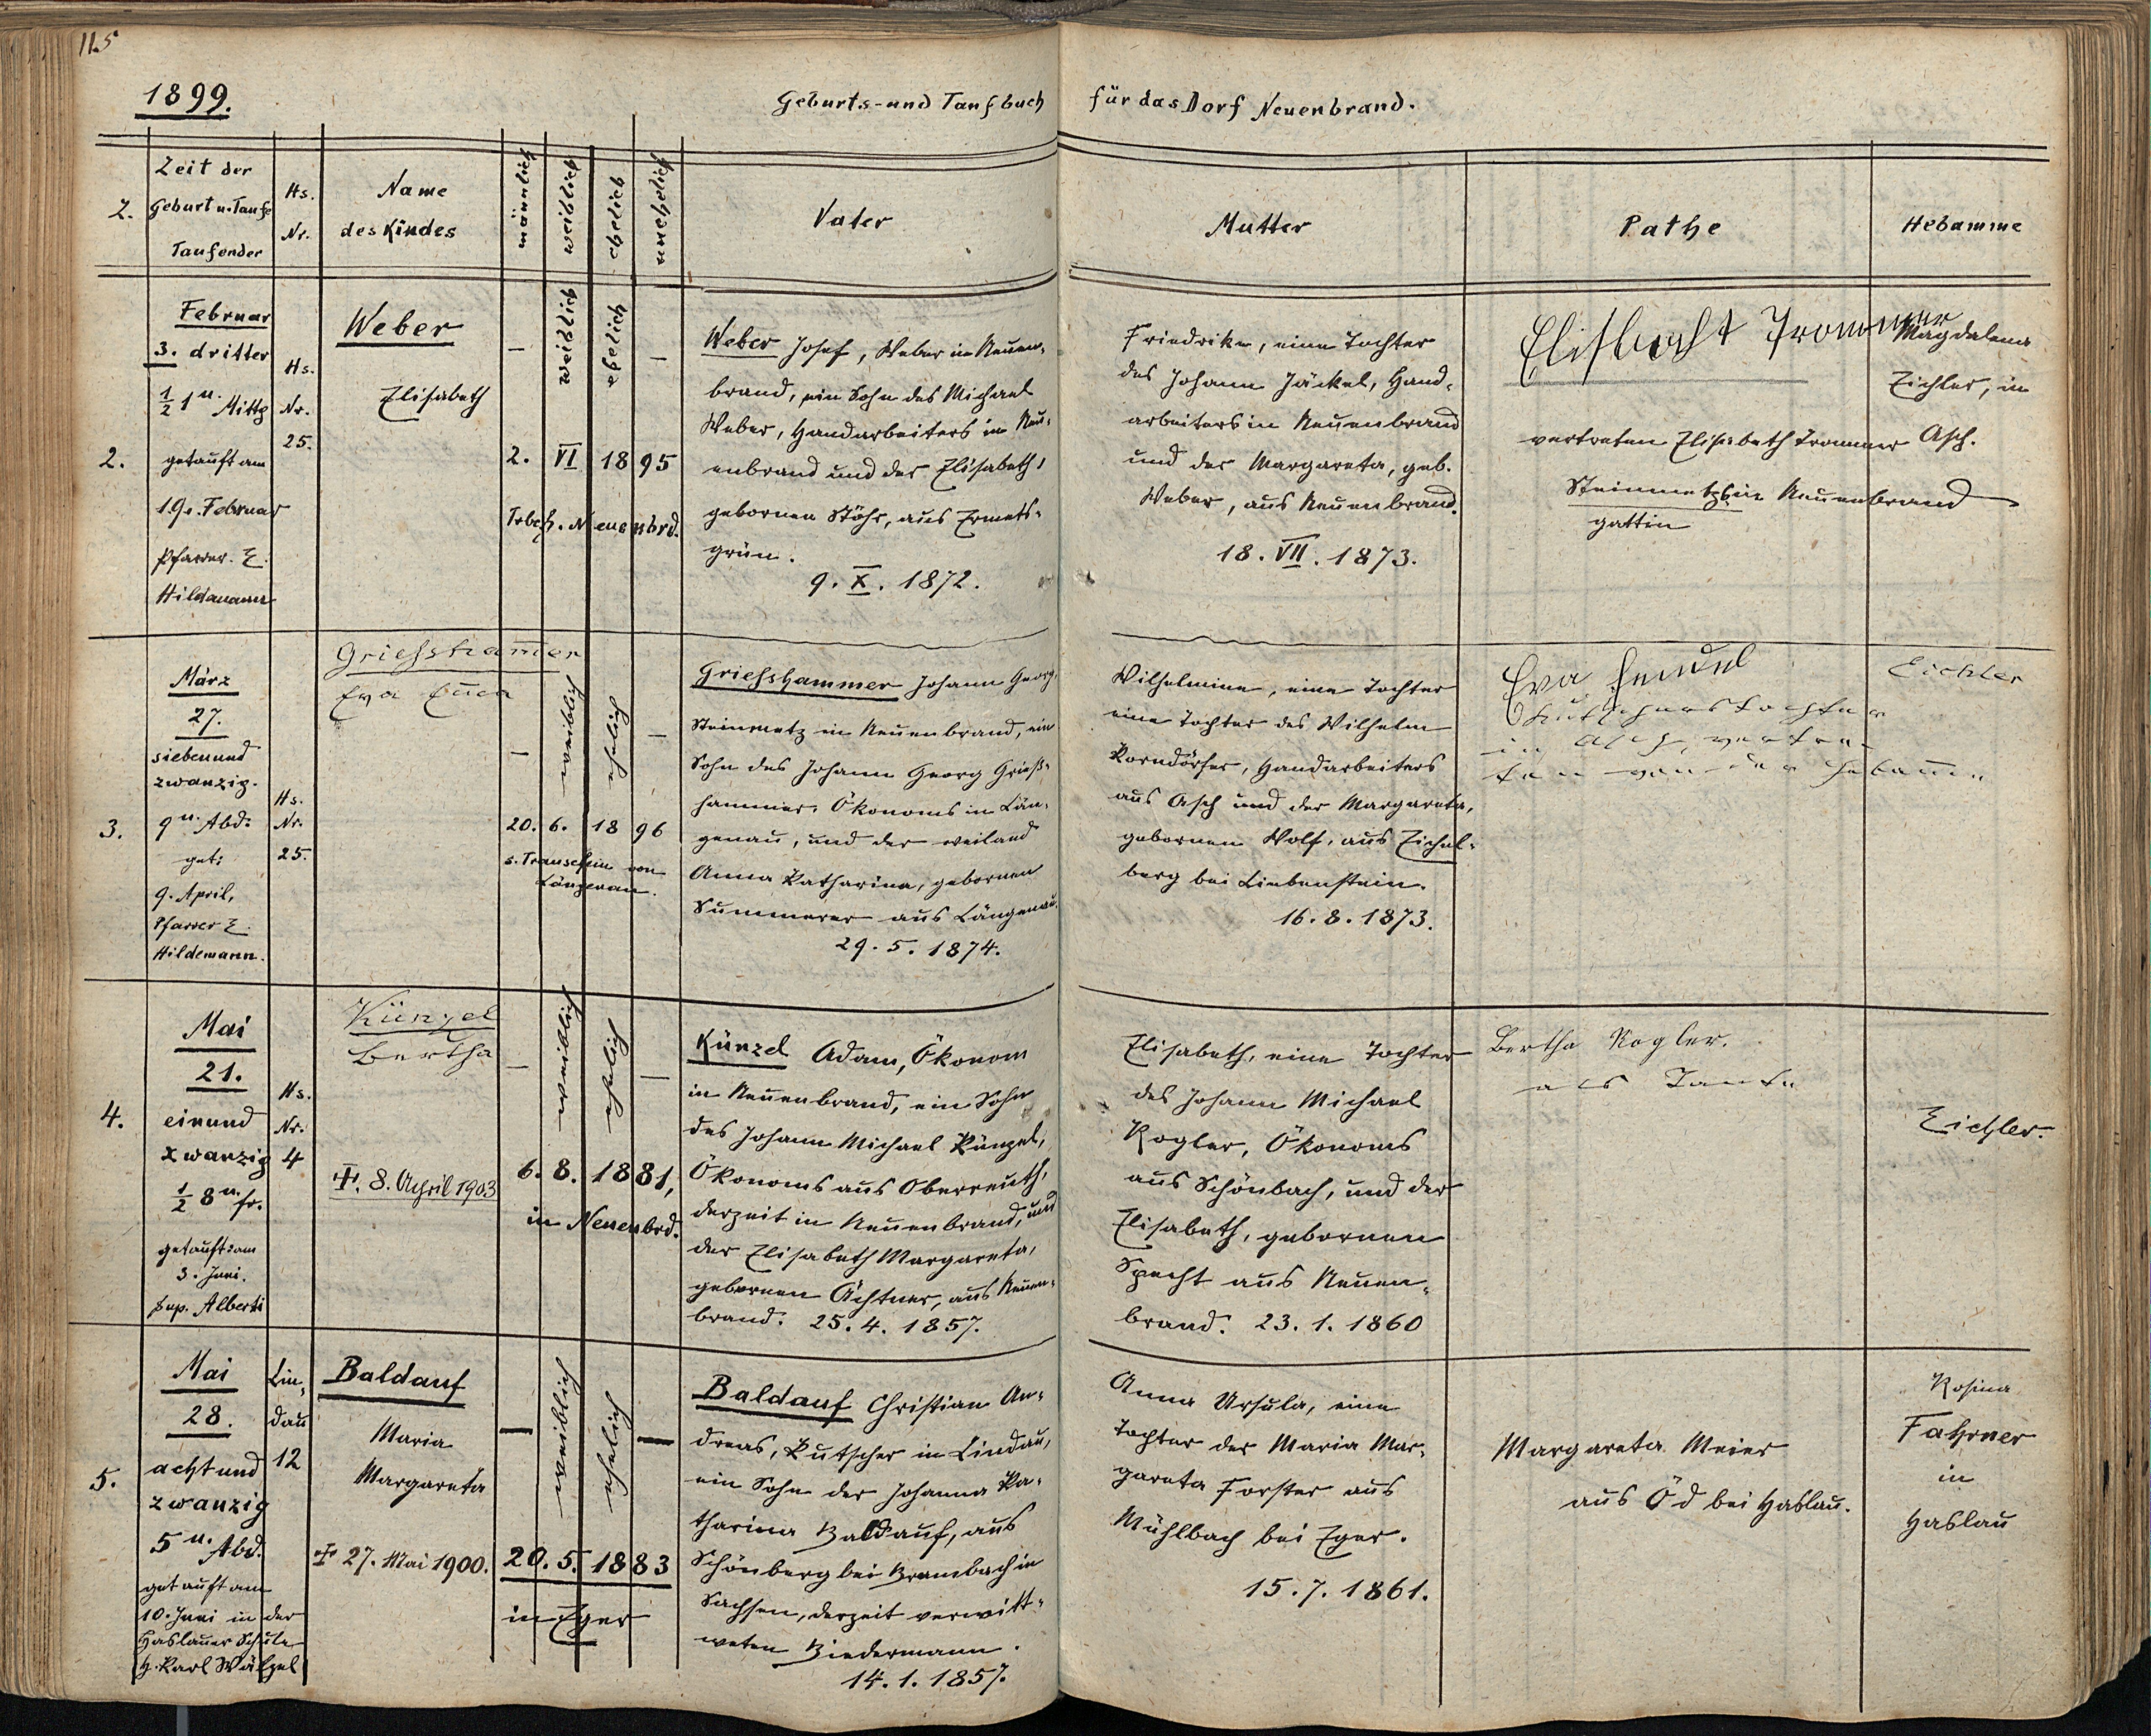 115
1899.
Geburts- und Taufbuch
für das Dorf Neuenbrand.
Z.
Zeit der
Geburt u. Taufe
Taufender
Hs.
Nr.
Name
des Kindes
männlich
weiblich
ehelich
unehelich
Vater
Mutter
Pathe
Hebamme
2.
Februar
3. dritter
1/2 1 u. Mittg
getauft am
19. Februar
Pfarrer E.
Hildemann
Hs.
Nr.
25.
Weber
Elisabeth
–
weiblich
ehelich
–
2. VI 1895
Trbch. Neuenbrd.
Weber Josef, Weber in Neuen-
brand, ein Sohn des Michael
Weber, Handarbeiters in Neu-
enbrand und der Elisabeth,
gebornen Stöhr, aus Ermets-
grün.
9. X. 1872.
Friedrike, eine Tochter
des Johann Jäckel, Hand-
arbeiters in Neuenbrand
und der Margareta, geb.
Weber, aus Neuenbrand.
18. VII. 1873.
Elisbecht Trommer
vertreten Elisabeth Trommer
Steinmetz in Neuenbrand
gattin
Magdalena
Eichler, in
Asch.
3.
März
27.
siebenund
zwanzig.
9 u. Abd:
get:
9. April,
Pfarrer E.
Hildemann.
Hs.
Nr.
25.
Griessham̅er
Eva
–
weiblich
ehelich
–
20. 6. 1896
s. Trauschein von
Längenau.
Griesshammer Johann Georg,
Steinmetz in Neuenbrand, ein
Sohn des Johann Georg Grieß-
hammer, Ökonoms in Län-
genau, und der weiland
Anna Katharina, gebornen
Summerer aus Längenau.
29. 5. 1874.
Wilhelmine, eine Tochter
eine Tochter des Wilhelm
Korndörfer, Handarbeiters
aus Asch und der Margareta,
gebornen Wolf, aus Eichel-
berg bei Liebenstein.
16. 8. 1873.
Eva Hendel
Kutscherstochter
in Asch, vertre-
ten von der Hebam̅e
Eichler
4.
Mai
21.
einund
zwanzig
1/2 8 u. fr.
getauft: am
3. Juni.
Sup. Alberti
Hs.
Nr.
4
Künzel
Bertha
✝. 8. April 1903
–
weiblich
ehelich
–
6. 8. 1881,
in Neuenbrd.
Künzel Adam, Ökonom
in Neuenbrand, ein Sohn
des Johann Michael Künzel,
Ökonoms aus Oberreuth,
derzeit in Neuenbrand, und
der Elisabeth Margareta,
gebornen Ächtner, aus Neuen-
brand. 25. 4. 1857.
Elisabeth, eine Tochter
des Johann Michael
Kogler, Ökonoms
aus Schönbach, und der
Elisabeth, gebornen
Specht aus Neuen-
brand. 23. 1. 1860
Bertha Kogler.
als Tante
Eichler.
5.
Mai
28.
achtund
zwanzig
5 u. Abd.
getauft am
10. Juni in der
Haslauer Schule
H. Karl Wälzel
Lin-
dau
12
Baldauf
Maria
Margareta
✝ 27. Mai 1900.
–
weiblich
ehelich
–
20. 5. 1883
in Eger
Baldauf Christian An-
dreas, Kutscher in Lindau,
ein Sohn der Johanna Ka-
tharina Baldauf, aus
Schönberg bei Brambach in
Sachsen, derzeit verwitt-
weten Biedermann.
14. 1. 1857.
Anna Ursula, eine
Tochter der Maria Mar-
gareta Forster aus
Mühlbach bei Eger.
15. 7. 1861.
Margareta Meier
aus Öd bei Haslau.
Rosina
Fahrner
in
Haslau